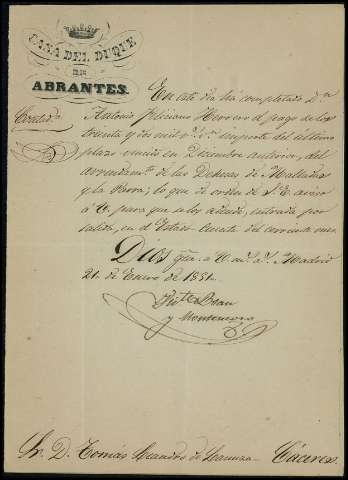 CASA DEL DUQUE
DE
ABRANTES.
Contad.ª
En este dia há completado D.n
Antonio Feliciano Herrero el pago de los
treinta y dos mil r.s v.n importe del último
plazo vencido en Diciembre anterior, del
arrendam.to de las Dehesas de Malladas
y la Parra; lo que de orden de S. E. aviso
á V. para que se los abonde, entrada por
salida, en el Estado Cuenta del corriente mes.
Dios gue. á V. m.s a.s Madrid
21. de Enero de 1851.
y Montenegro
Sr. D. Tomás Leandro de Lanuza. - Cáceres.